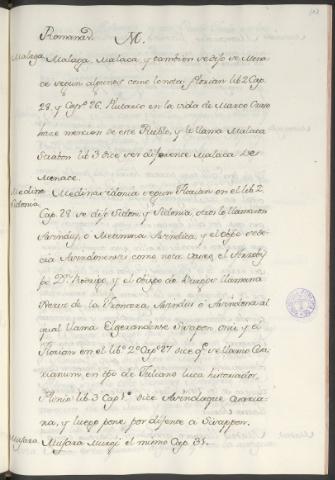 M.
Malaga Malaga, Malaca, y tambien se dijo se Mena-
ce segun algunos como lo nota, Florian lib 2 Cap.
28. y Capº 26. Plutarco en la vida de Marco Craso
hace mencion de este Pueblo, y le llama Malaca
Strabon lib 3 dice ser diferente Malaca de
Menace.
Medina Sidonia Medina Sidonia segun Florian en el lib 2
Cap. 28 se dijo Sidon, y Sidonia, otros la llamaron
Asindu, o Metimna Asindica, y el Obpo se de-
cia Asindonense como nota el Arzobis
po Dn. Rodrigo y el obispo de Burgos llamana
Xerez de la Frontera Asindu o Asindona al
qual llama
Florian en el libº 2º Capº 27 dice q.e se llamo
en tpo de Juliano luca historiador.
Plinio lib 3 Capº 1º dice Asindaque
na, y luego pone por difente a
Mujara Mujara Murgi el mismo Cap. 31.